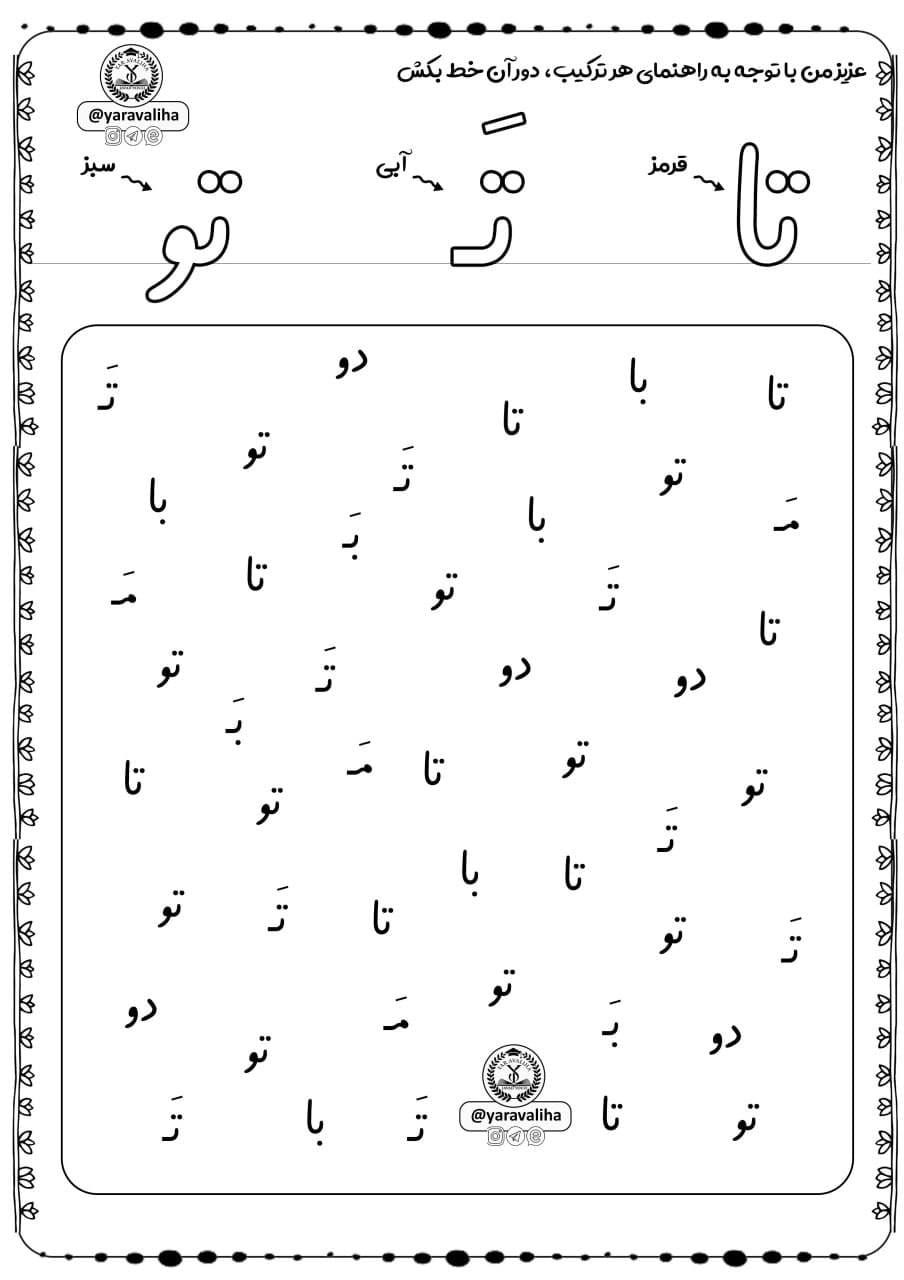 عزیز من با توجه به راهنمای هر ترکیب، دور آن خط بکش
YAR AVALIHA
@yaravaliha
قرمز تا آبی تَـ سبز تو
تا با تا دو تَـ
تو تَـ تو
مَـ با بَـ با
تَـ تو تا مَـ
تا دو دو تَـ تو
بَـ
تو تو تا مَـ تا
تَـ تو
تا با
تَـ تو تا تَـ تو
تو
دو بَـ مَـ دو
تو
YAR AVALIHA
@yaravaliha
تو تا تَـ با تَـ